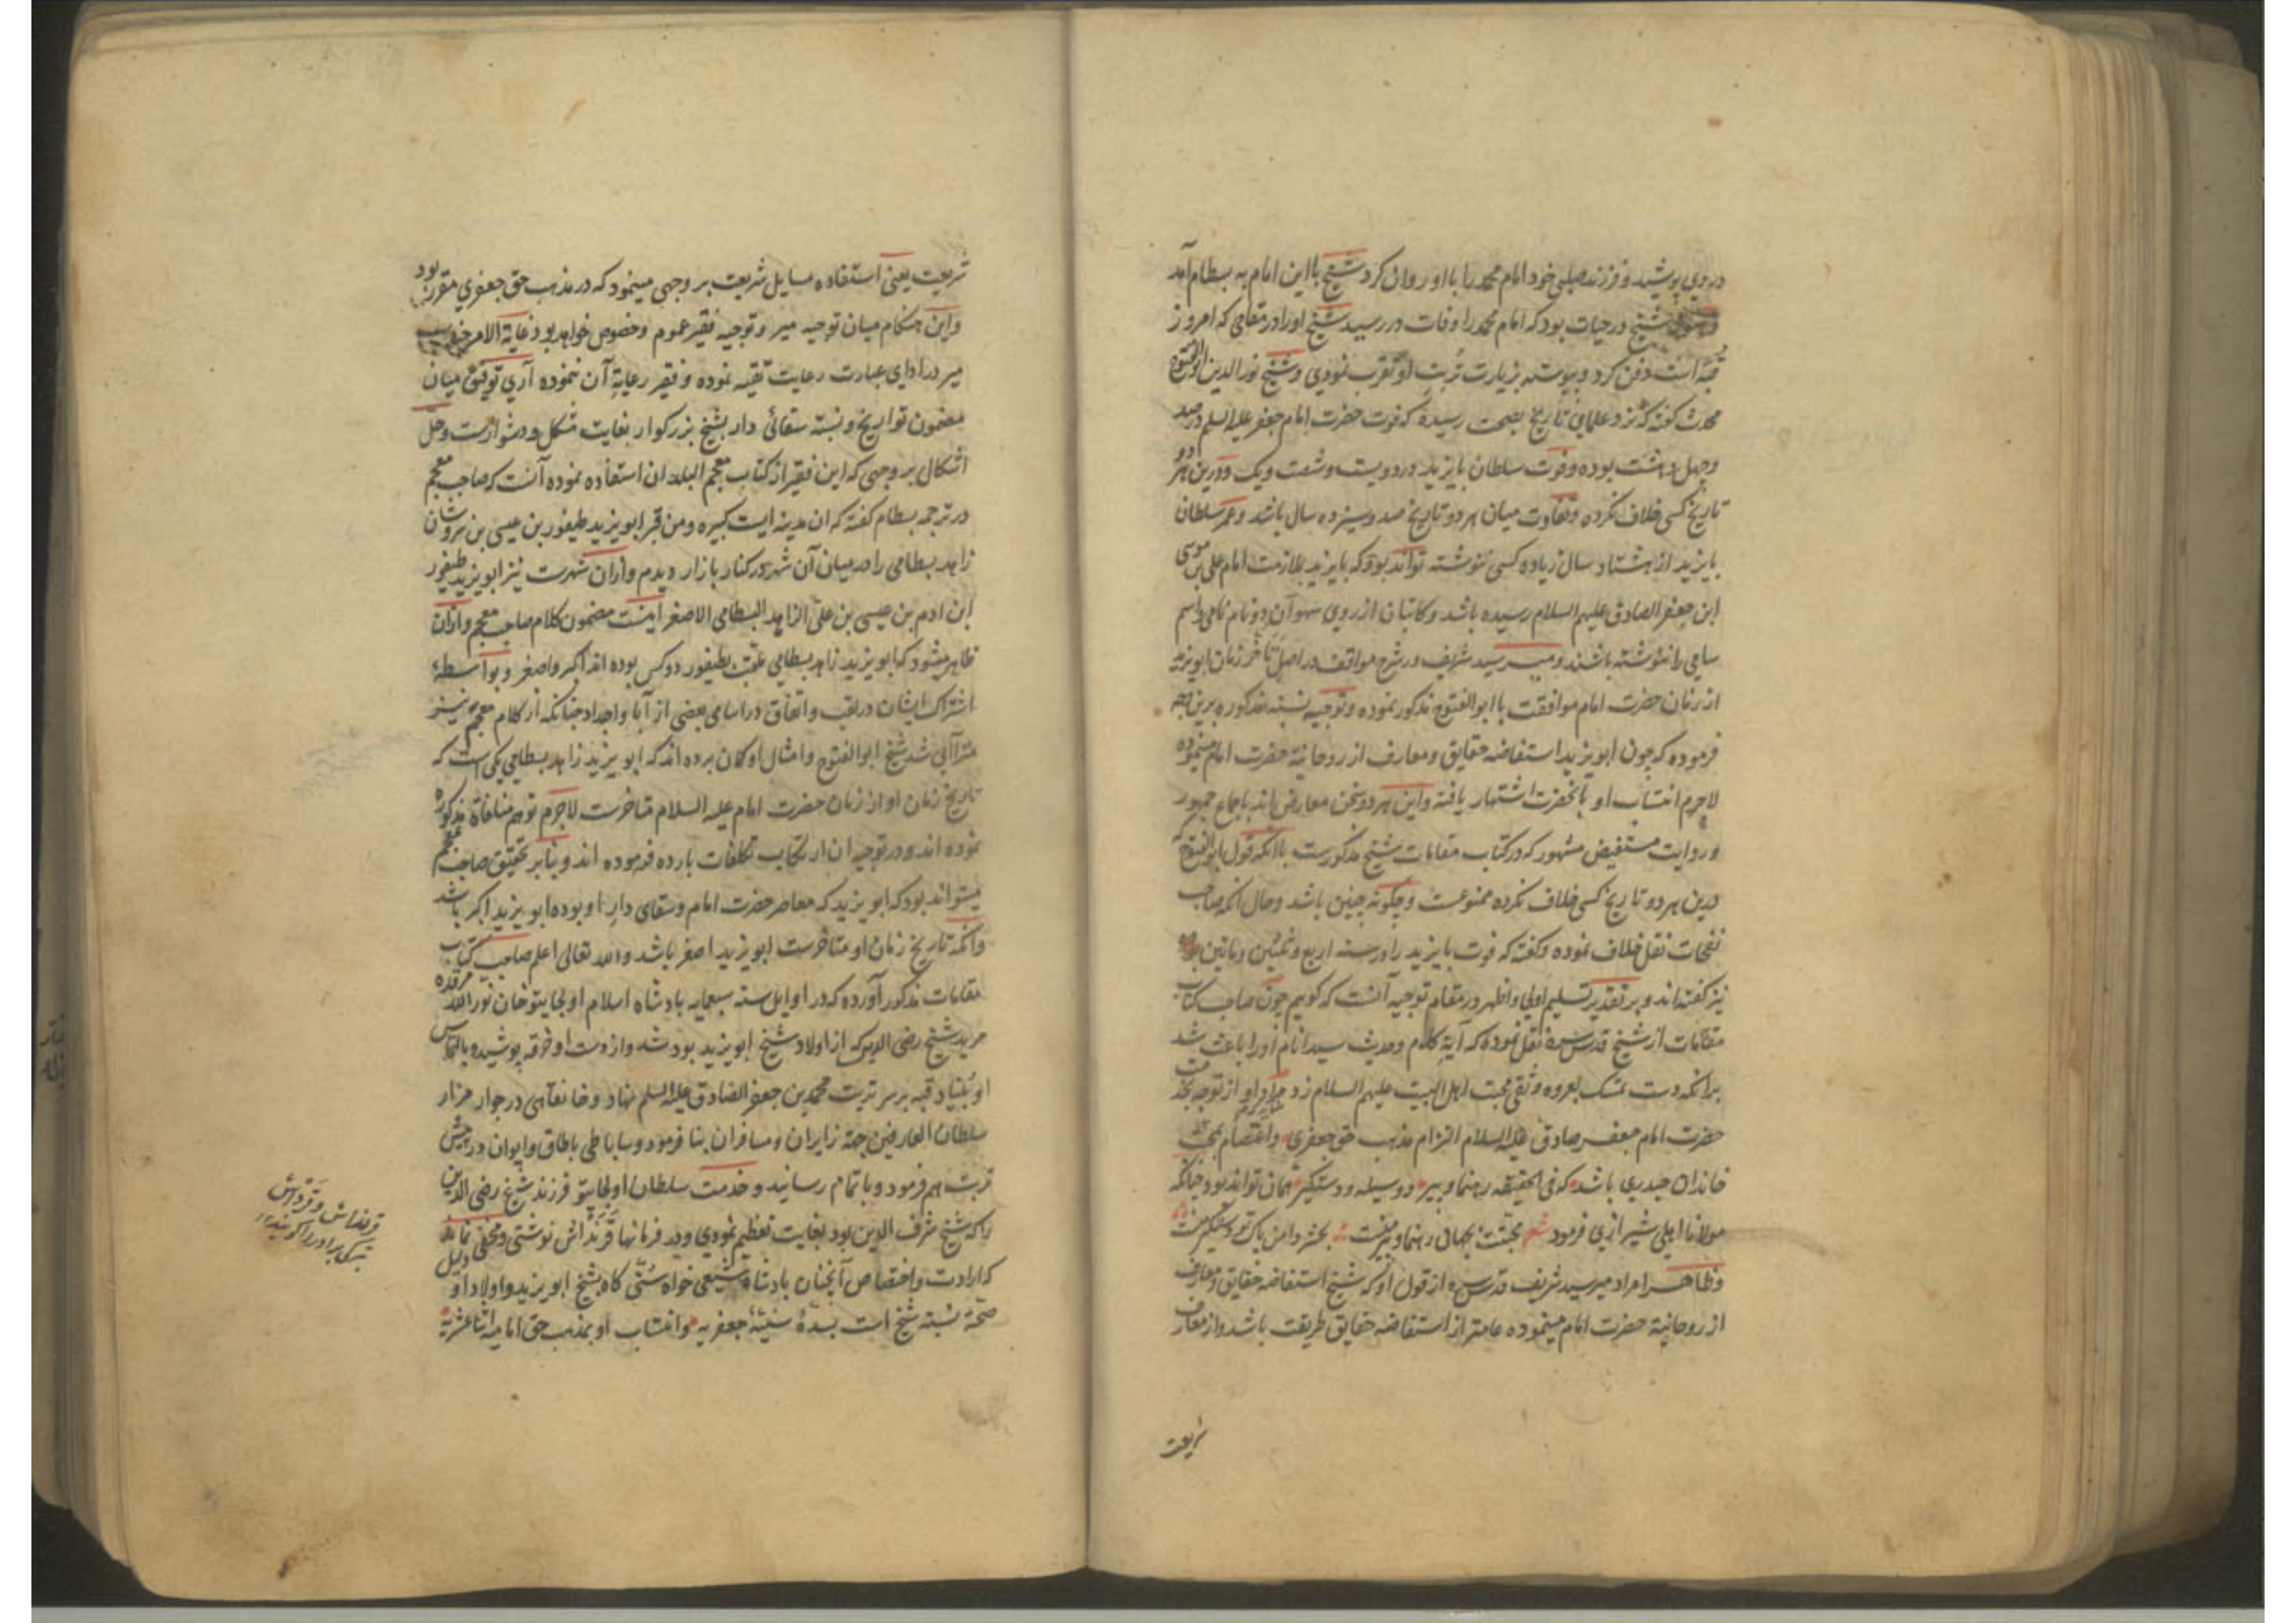 در وی پوشید و فرزند صلبی خود امام محمد را با او روان کرد شیخ با این امام به بسطام آمد
شیخ در حیات بود که امام محمد را وفات در رسید شیخ او را در مقامی که امروز
قبه است دفن کرد و پیوسته بزیارت تربت او تقرب نمودی و شیخ نور الدین ابو الفتوح
محدث گفته که نزد علمای تاریخ بصحت رسیده که فوت حضرت امام جعفر علیه السلم در صد
و چهل و هشت بوده و فوت سلطان بایزید در دویست و شصت و یک و درین هر دو
تاریخ کسی خلاف نکرده و تفاوت میان هر دو تاریخ صد و سیزده سال باشد و عمر سلطان
بایزید از هشتاد سال زیاده کسی ننوشته تواند بود که بایزید بملازمت امام علی بن موسی
ابن جعفر الصادق علیهم السلام رسیده باشد و کاتبان از روی سهو آن دو نام نامی و اسم
سامی را ننوشته باشند و میر سید شریف در شرح مواقف در اصل تأخر زمان ابویزید
از زمان حضرت امام موافقت با ابو الفتوح مذکور نموده و توجیه نسبته مذکوره برین وجه
فرموده که چون ابویزید استفاضه حقایق و معارف از روحانیة حضرت امام مینموده
لاجرم انتساب او بآنحضرت اشتهار یافته و این هر دو سخن معارض اند باجماع جمهور
و روایت مستفیض مشهور که در کتاب مقامات شیخ مذکورست با آنکه قول ابو الفتوح که
درین هر دو تاریخ کسی خلاف نکرده ممنوعست و چگونه چنین باشد و حال آنکه صاحب
نفحات نقل خلاف نموده و گفته که فوت بایزید را در سنه اربع و ثلثین و ماتین بوده
نیز گفته اند و بر تقدیر تسلیم اولی و اظهر در مقام توجیه آنست که گوییم چون صاحب کتاب
مقامات از شیخ قدس سره نقل نموده که آیة کلام و حدیث سید انام او را باعث شد
برانکه دست تمسک بعروه وثقی محبت اهل البیت علیهم السلام زد مراد او از توجه بخدمت
حضرت امام جعفر صادق علیه السلام التزام مذهب حق جعفری و اعتصام بمحبت
خاندان حیدری باشد که فی الحقیقه رهنما و پیر و وسیله و دستگیر همان تواند بود چنانکه
مولانا اهلی شیرازی فرمود شعر محبتت بجهان رهنما و پیر منست بحشر دامن پاک تو دستگیر منست
و ظاهرا مراد میر سید شریف قدس سره از قول او که شیخ استفاضه حقایق و معارف
از روحانیة حضرت امام مینموده عامتر از استفاضه حقایق طریقت باشد و از معارف
شریعت
شریعت یعنی استفاده مسایل شریعت بر وجهی مینمود که در مذهب حق جعفری مقرر بود
و این هنگام میان توجیه میر و توجیه فقیر عموم و خصوص خواهد بود غایة الامر
میر در ادای عبارت رعایت تقیه نموده و فقیر رعایة آن ننموده آری توفیق میان
مضمون تواریخ و نسبته سقائی دار بشیخ بزرگوار بغایت مشکل و دشوارست و حل
اشکال بر وجهی که این فقیر از کتاب معجم البلدان استفاده نموده آنست که صاحب معجم
در ترجمه بسطام گفته که آن مدینه ایست کبیره و من قبر ابو یزید طیفور بن عیسی بن سروشان
زاهد بسطامی را در میان آن شهر در کنار بازار دیدم و از آن شهرست نیز ابو یزید طیفور
ابن ادم بن عیسی بن علی الزاهد البسطامی الاصغر اینست مضمون کلام صاحب معجم و از آن
ظاهر میشود که ابو یزید زاهد بسطامی ملقب بطیفور دو کس بوده اند اکبر و اصغر و بواسطه
اشتراک ایشان در لقب و اتفاق در اسامی بعضی از آبا و اجداد چنانکه از کلام معجم نیز
مترآای شد شیخ ابو الفتوح و امثال او گمان برده اند که ابو یزید زاهد بسطامی یکی است که
تاریخ زمان او از زمان حضرت امام علیه السلام متاخرست لاجرم توهم منافاة مذکوره
نموده اند و در توجیه آن ارتکاب تکلفات بارده فرموده اند و بنابر تحقیق صاحب معجم
میتواند بود که ابو یزید که معاصر حضرت امام و سقای دار او بوده ابو یزید اکبر باشد
و آنکه تاریخ زمان او متاخرست ابو یزید اصغر باشد و الله تعالی اعلم صاحب کتاب
مقامات مذکور آورده که در اوایل سنه سبعمایه پادشاه اسلام اولجایتو خان نور الله مرقده
مرید شیخ رضی الدین که از اولاد شیخ ابو یزید بود شد و از دست او خرقه پوشید و بالتماس
او بنیاد قبه بر سر تربت محمد بن جعفر الصادق علیه السلم نهاد و خانقاهی در جوار مزار
سلطان العارفین جهة زایران و مسافران بنا فرمود و ساباطی با طاق و ایوان در پیش
تربت هم فرمود و باتمام رسانید و خدمت سلطان اولجایتو فرزند شیخ رضی الدین
را که شیخ شرف الدین بود بغایت تعظیم نمودی و در فرمانها قرنداش نوشتی و مخفی نماند
که ارادت و اختصاص آنچنان پادشاه شیعی خواه سنی کاه بشیخ ابو یزید و اولاد او دلیل
صحة نسبته شیخ است بسدهٔ سنیهٔ جعفریه و انتساب او بمذهب حق امامیه اثنا عشریه
قرنداش و قردش
ترکی برادر را گویند